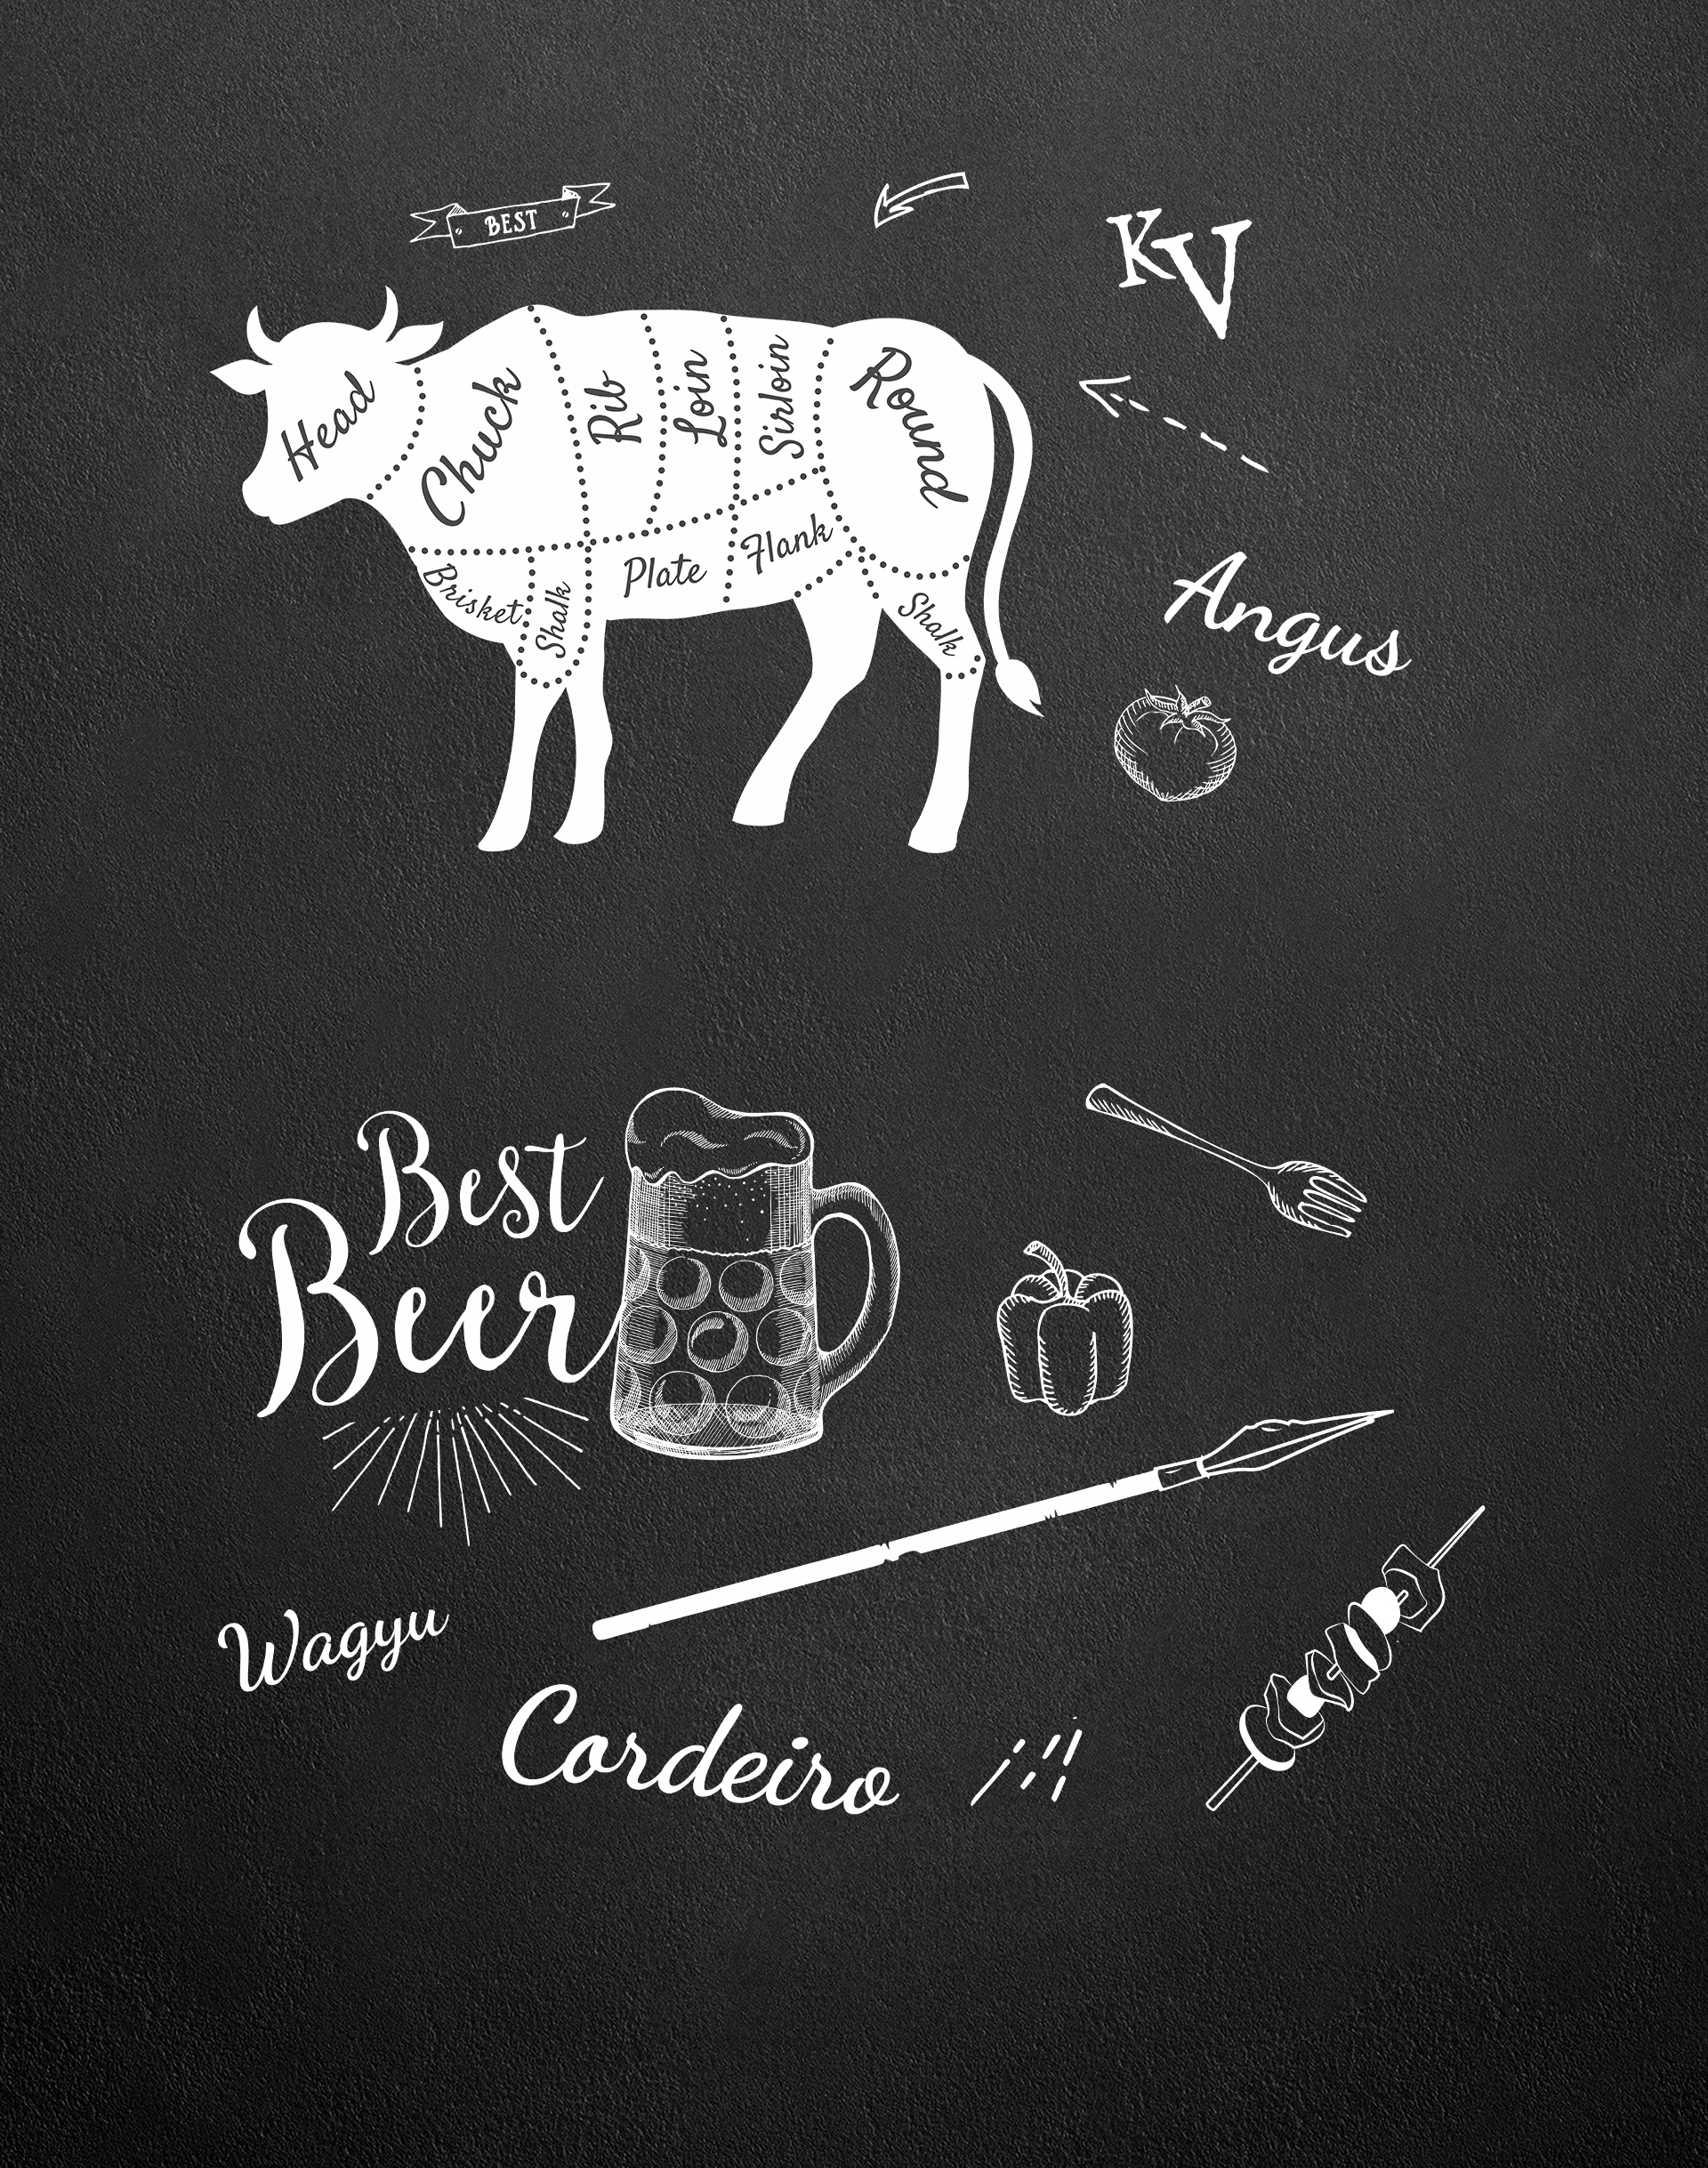 BEST
KV
Head
Chuck
Rib
Loin
Sirloin
Round
Brisket
Shalk
Plate
Flank
Shalk
Angus
Best
Beer
Wagyu
Cordeiro